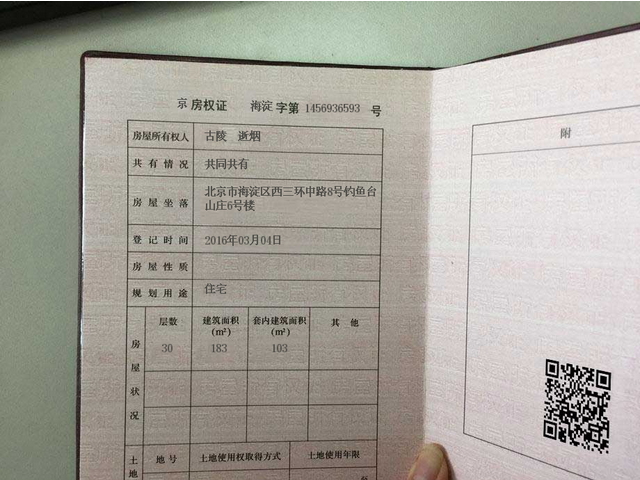 京 房权证 海淀 字第 1456936593 号
附
房屋所有权人 古陵 逝烟
共有情况 共同共有
房屋坐落 北京市海淀区西三环中路8号钓鱼台
山庄6号楼
登记时间 2016年03月04日
房屋性质
规划用途 住宅
房屋状况 层数 建筑面积(m²) 套内建筑面积(m²) 其他
30 183 103
土地 地号 土地使用权取得方式 土地使用年限
至